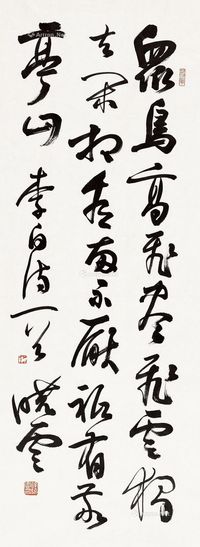 眾鳥高飛盡孤雲獨
去閒相看兩不厭祗有敬
亭山 李白詩一首 曉雲